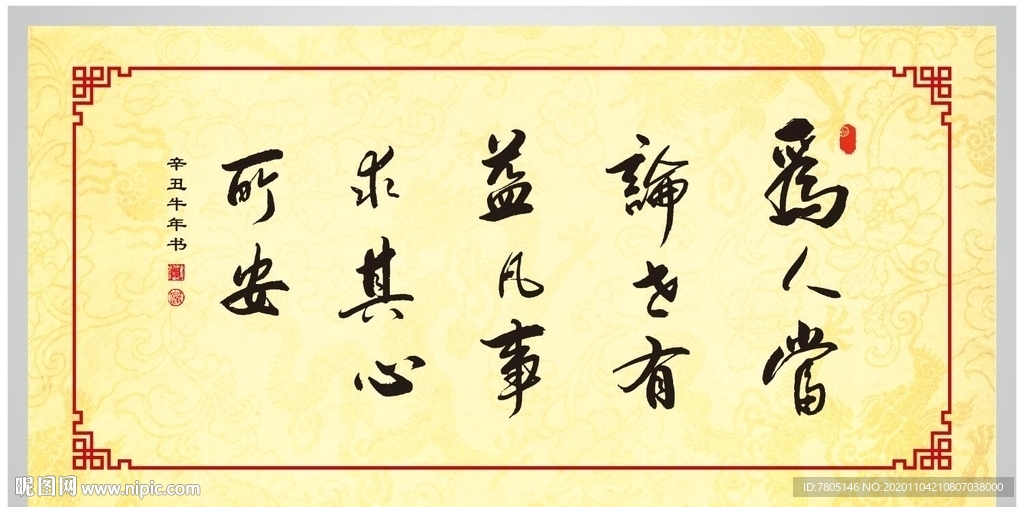 為人當
論世有
益凡事
求其心
所安
辛丑牛年书
昵图网 www.nipic.com
ID:7805146 NO:20201104210807038000